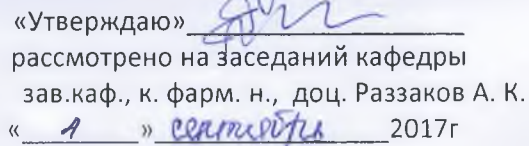 «Утверждаю»
рассмотрено на заседаний кафедры
зав.каф., к. фарм. н., доц. Раззаков А. К.
« 1 » сентября 2017г